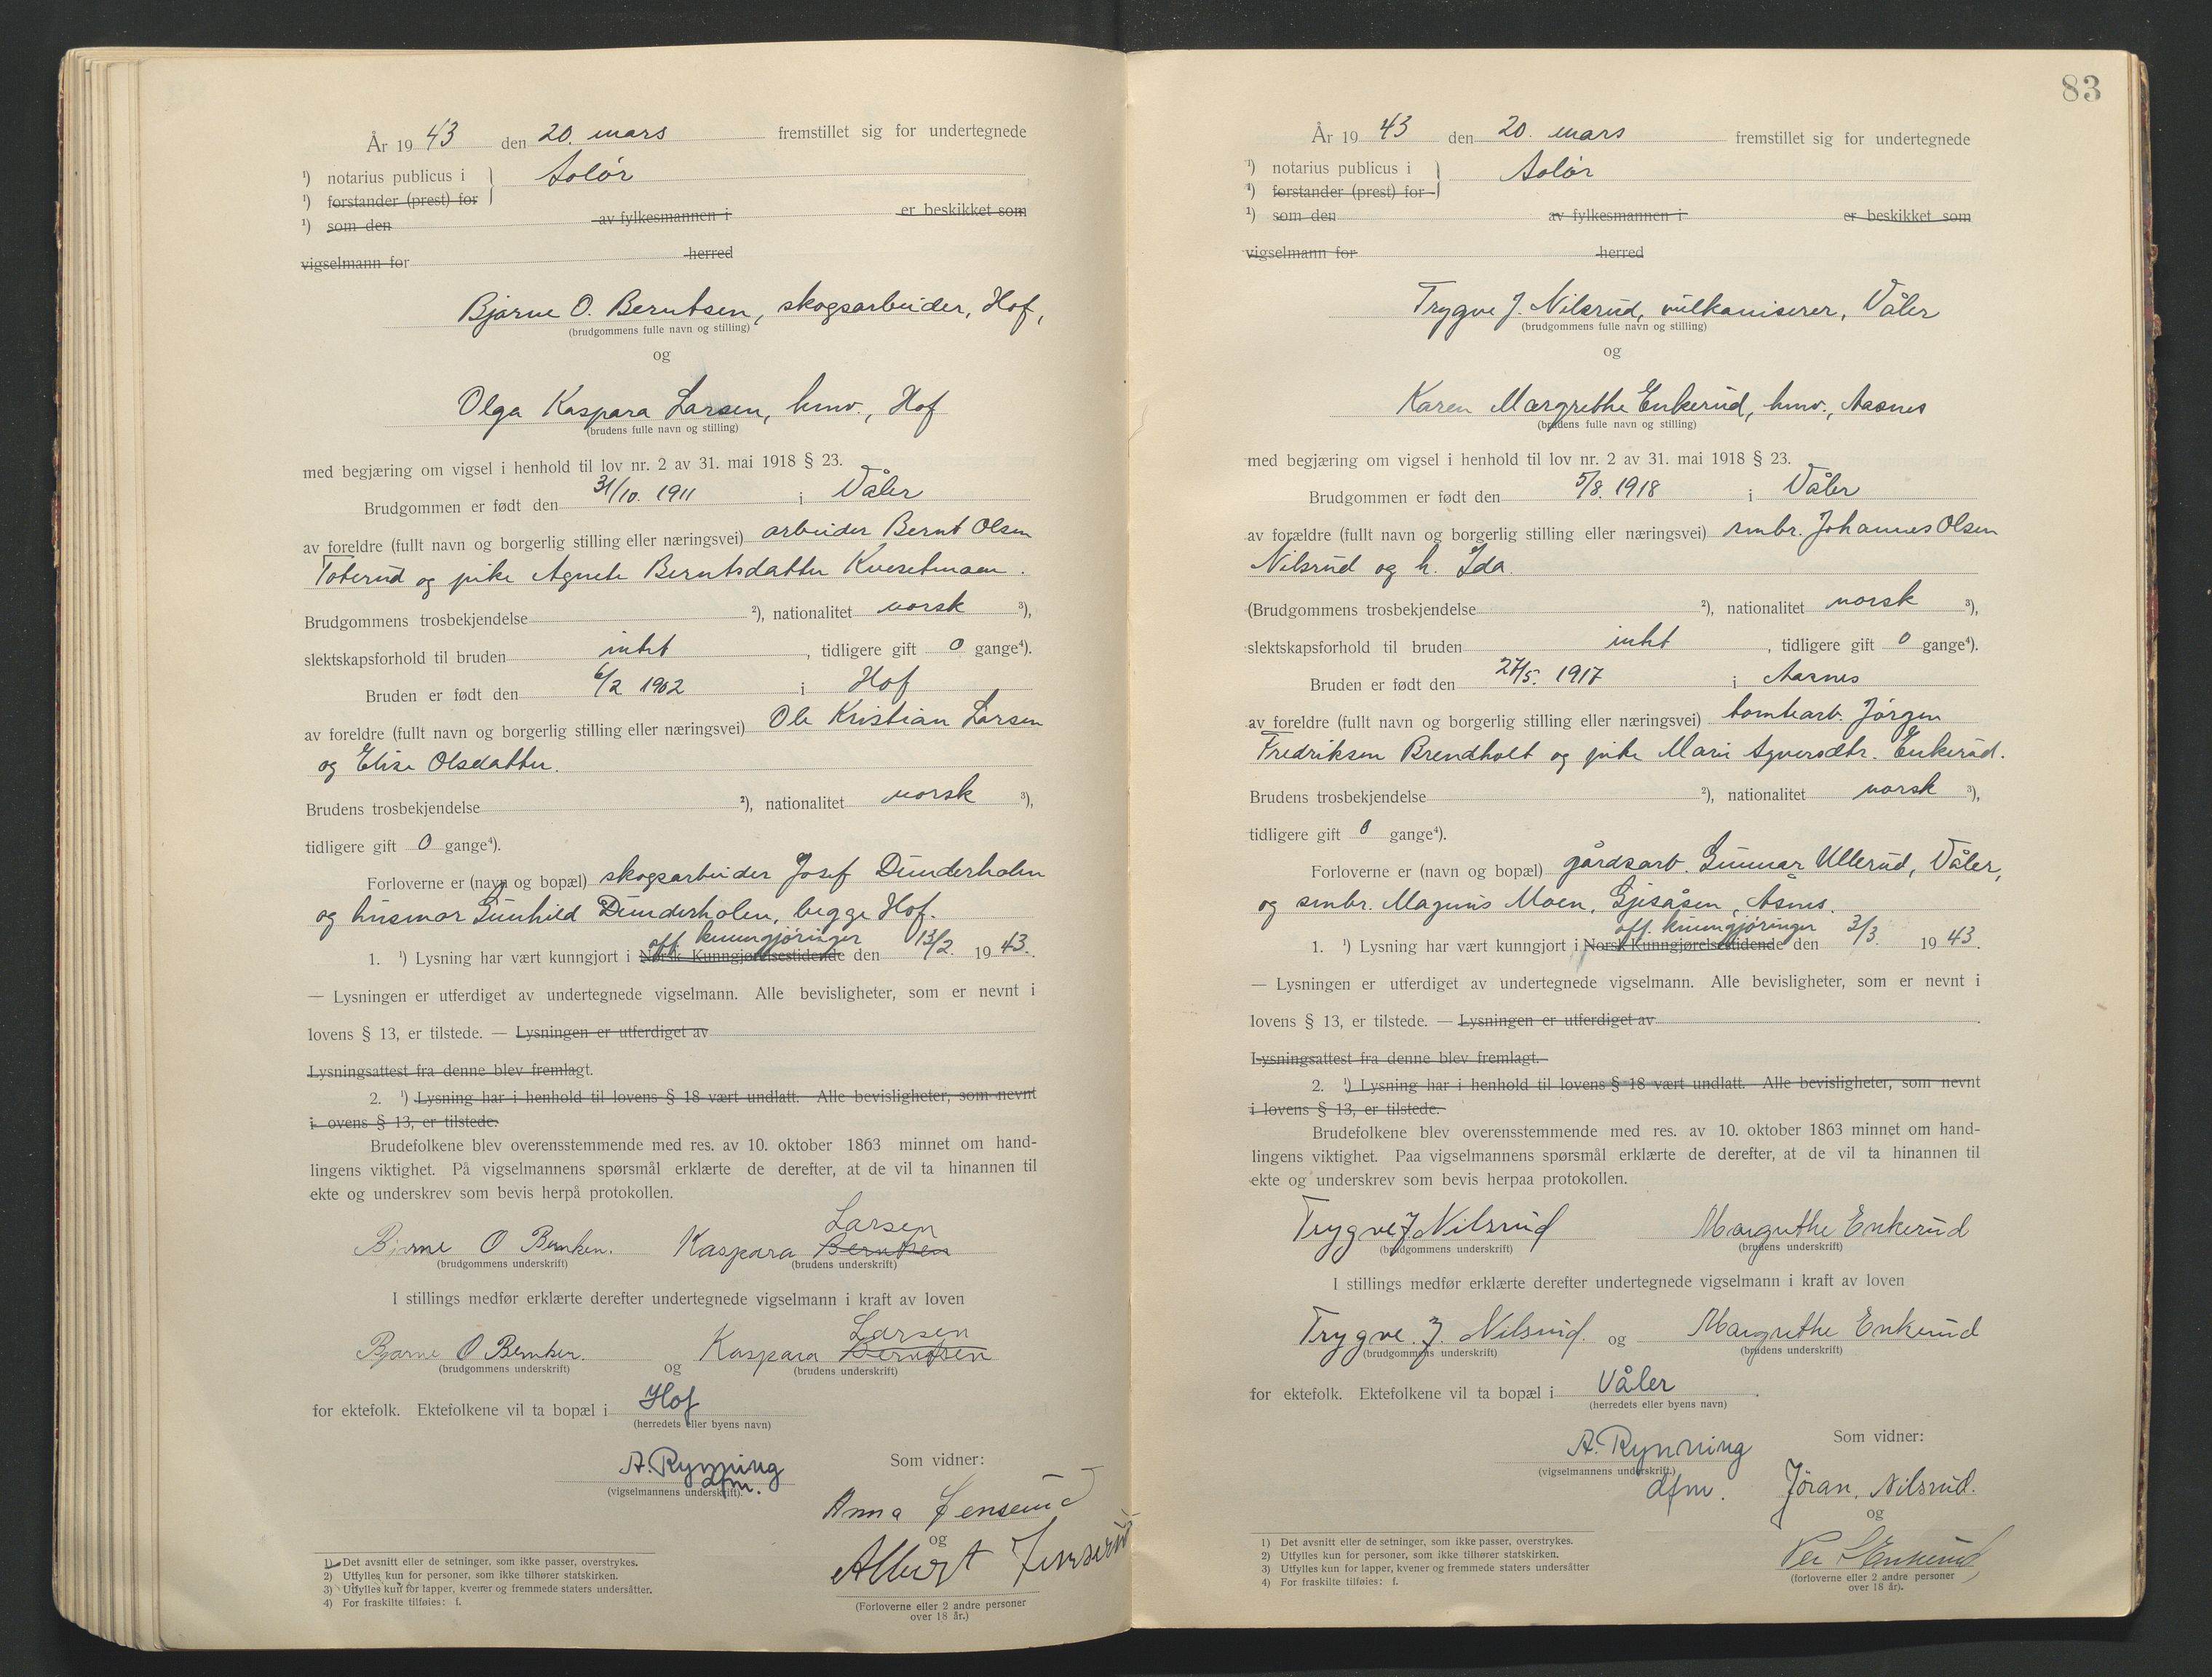 År 1943 den 20. mars fremstillet sig for undertegnede
¹) notarius publicus i } Solør
¹) forstander (prest) for
¹) som den av fylkesmannen i er beskikket som
vigselmann for herred
Bjarne O. Berntsen, skogsarbeider, Hof,
(brudgommens fulle navn og stilling)
og
Olga Kaspara Larsen, hmv., Hof
(brudens fulle navn og stilling)
med begjæring om vigsel i henhold til lov nr. 2 av 31. mai 1918 § 23.
Brudgommen er født den 31/10. 1911 i Våler
av foreldre (fullt navn og borgerlig stilling eller næringsvei) arbeider Bernt Olsen
Toterud og pike Agnete Berntsdatter Kvesetmoen.
Brudgommens trosbekjendelse ²), nationalitet norsk ³),
slektskapsforhold til bruden intet, tidligere gift 0 gange⁴).
Bruden er født den 6/2 1902 i Hof
av foreldre (fullt navn og borgerlig stilling eller næringsvei) Ole Kristian Larsen
og Elise Olsdatter.
Brudens trosbekjendelse ²), nationalitet norsk ³),
tidligere gift 0 gange⁴).
Forloverne er (navn og bopæl) skogsarbeider Josef Dunderholen
og husmor Gunhild Dunderholen, begge Hof.
off. kunngjøringer
1. ¹) Lysning har vært kunngjort i Norsk Kunngjørelsestidende den 13/2. 1943.
— Lysningen er utferdiget av undertegnede vigselmann. Alle bevisligheter, som er nevnt i
lovens § 13, er tilstede. — Lysningen er utferdiget av
Lysningsattest fra denne blev fremlagt.
2. ¹) Lysning har i henhold til lovens § 18 vært undlatt. Alle bevisligheter, som nevnt
i ovens § 13, er tilstede.
Brudefolkene blev overensstemmende med res. av 10. oktober 1863 minnet om hand-
lingens viktighet. På vigselmannens spørsmål erklærte de derefter, at de vil ta hinannen til
ekte og underskrev som bevis herpå protokollen.
Larsen
Bjarne O Berntsen. Kaspara Berntsen
(brudgommens underskrift) (brudens underskrift)
I stillings medfør erklærte derefter undertegnede vigselmann i kraft av loven
Larsen
Bjarne O Berntsen. og Kaspara Berntsen
(brudgommens underskrift) (brudens underskrift)
for ektefolk. Ektefolkene vil ta bopæl i Hof
(herredets eller byens navn)
A. Rynning
dfm.
(vigselmannens underskrift).
Som vidner:
Anna Jenserud
og
Albert Jenserud
(Forloverne eller 2 andre personer
over 18 år.)
1) Det avsnitt eller de setninger, som ikke passer, overstrykes.
2) Utfylles kun for personer, som ikke tilhører statskirken.
3) Utfylles kun for lapper, kvener og fremmede staters undersåtter.
4) For fraskilte tilføies: f.
83
År 1943 den 20. mars fremstillet sig for undertegnede
¹) notarius publicus i } Solør
¹) forstander (prest) for
¹) som den av fylkesmannen i er beskikket som
vigselmann for herred
Trygve J. Nilsrud, vulkaniserer, Våler
(brudgommens fulle navn og stilling)
og
Karen Margrethe Enkerud, hmv., Aasnes
(brudens fulle navn og stilling)
med begjæring om vigsel i henhold til lov nr. 2 av 31. mai 1918 § 23.
Brudgommen er født den 5/8. 1918 i Våler
av forældre (fullt navn og borgerlig stilling eller næringsvei) smbr. Johannes Olsen
Nilsrud og h. Ida.
(Brudgommens trosbekjendelse ²), nationalitet norsk ³),
slektskapsforhold til bruden intet, tidligere gift 0 gange⁴).
Bruden er født den 27/5. 1917 i Aasnes
av foreldre (fullt navn og borgerlig stilling eller næringsvei) tomtearb. Jørgen
Fredriksen Brendholt og pike Marie Syversdtr. Enkerud.
Brudens trosbekjendelse ²), nationalitet norsk ³),
tidligere gift 0 gange⁴).
Forloverne er (navn og bopæl) gårdsarb. Gunnar Ullerud, Våler,
og smbr. Magnus Moen, Gjesåsen, Åsnes.
off. kunngjøringer
1. ¹) Lysning har vært kunngjort i Norsk Kunngjørelsestidende den 3/3. 1943.
— Lysningen er utferdiget av undertegnede vigselmann. Alle bevisligheter, som er nevnt i
lovens § 13, er tilstede. — Lysningen er utferdiget av
Lysningsattest fra denne blev fremlagt.
2. ¹) Lysning har i henhold til lovens § 18 vært undlatt. Alle bevisligheter, som nevnt
i lovens § 13, er tilstede.
Brudefolkene blev overensstemmende med res. av 10. oktober 1863 minnet om hand-
lingens viktighet. Paa vigselmannens spørsmål erklærte de derefter, at de vil ta hinannen til
ekte og underskrev som bevis herpaa protokollen.
Trygve J Nilsrud Margrethe Enkerud
(brudgommens underskrift) (brudens underskrift)
I stillings medfør erklærte derefter undertegnede vigselmann i kraft av loven
Trygve. J. Nilsrud. og Margrethe Enkerud
(brudgommens underskrift) (brudens underskrift)
for ektefolk. Ektefolkene vil ta bopæl i Våler
(herredets eller byens navn)
A. Rynning
(vigselmannens underskrift.)
dfm.
Som vidner:
Jöran. Nilsrud.
og
Per Enkerud
(forloverne eller 2 andre personer
over 18 år).
1) Det avsnitt eller de setninger, som ikke passer, overstrykes.
2) Utfylles kun for personer, som ikke tilhører statskirken.
3) Utfylles kun for lapper, kvener og fremmede staters undersåtter
4) For fraskilte tilføies: f.